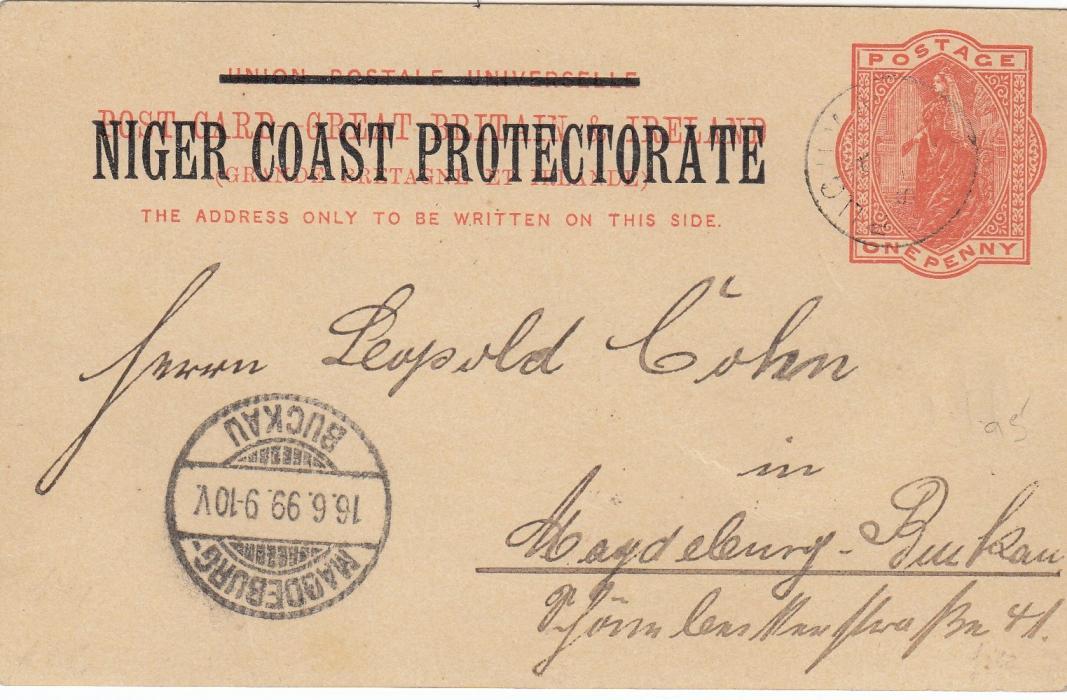 UNION POSTALE UNIVERSELLE
POST CARD - GREAT BRITAIN & IRELAND
NIGER COAST PROTECTORATE
(GRANDE BRETAGNE ET IRLANDE)
THE ADDRESS ONLY TO BE WRITTEN ON THIS SIDE.
POSTAGE
ONE PENNY
Herrn Leopold Cohn
in
Magdeburg-Buckau
Schönebeckerstraße 41.
MAGDEBURG-
16.6.99.9-10V.
BUCKAU
95